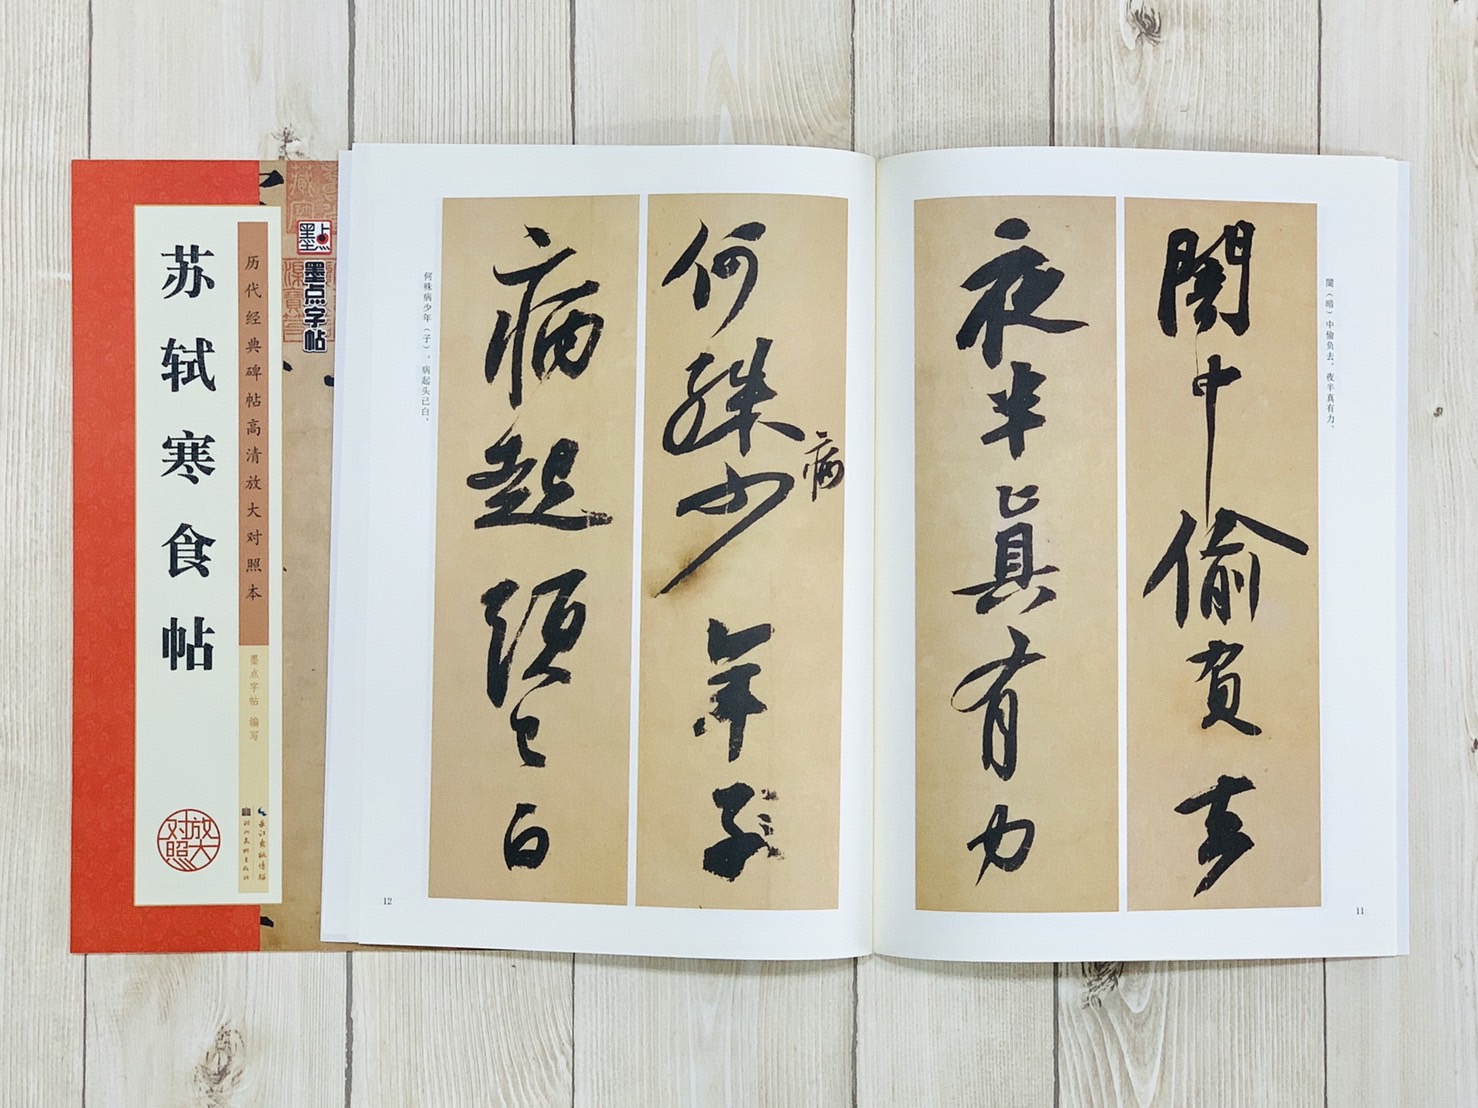 苏轼寒食帖
历代经典碑帖高清放大对照本
墨点字帖 编写
长江出版传媒
湖北美术出版社
放大对照
墨点
墨点字帖
闇（暗）中偷负去，夜半真有力。
闇中偷負去
夜半眞有力
11
何殊少年子
病
病起頭已白
何殊病少年（子），病起头已白。
12